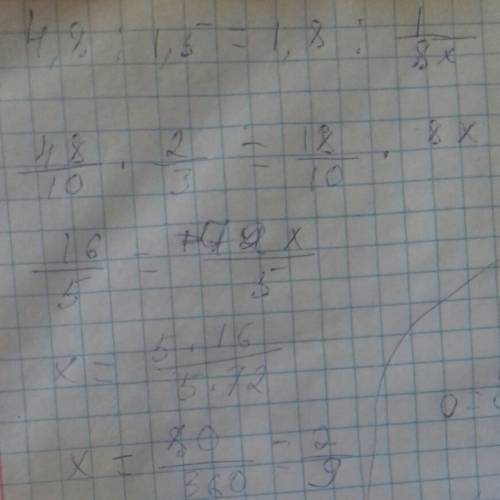 4,8 : 1,5 = 1,8 : 1/8x
48/10 · 2/3 = 18/10 · 8x
16/5 = 72x/5
x = 5·16/5·72
x = 80/360 = 2/9
0 =